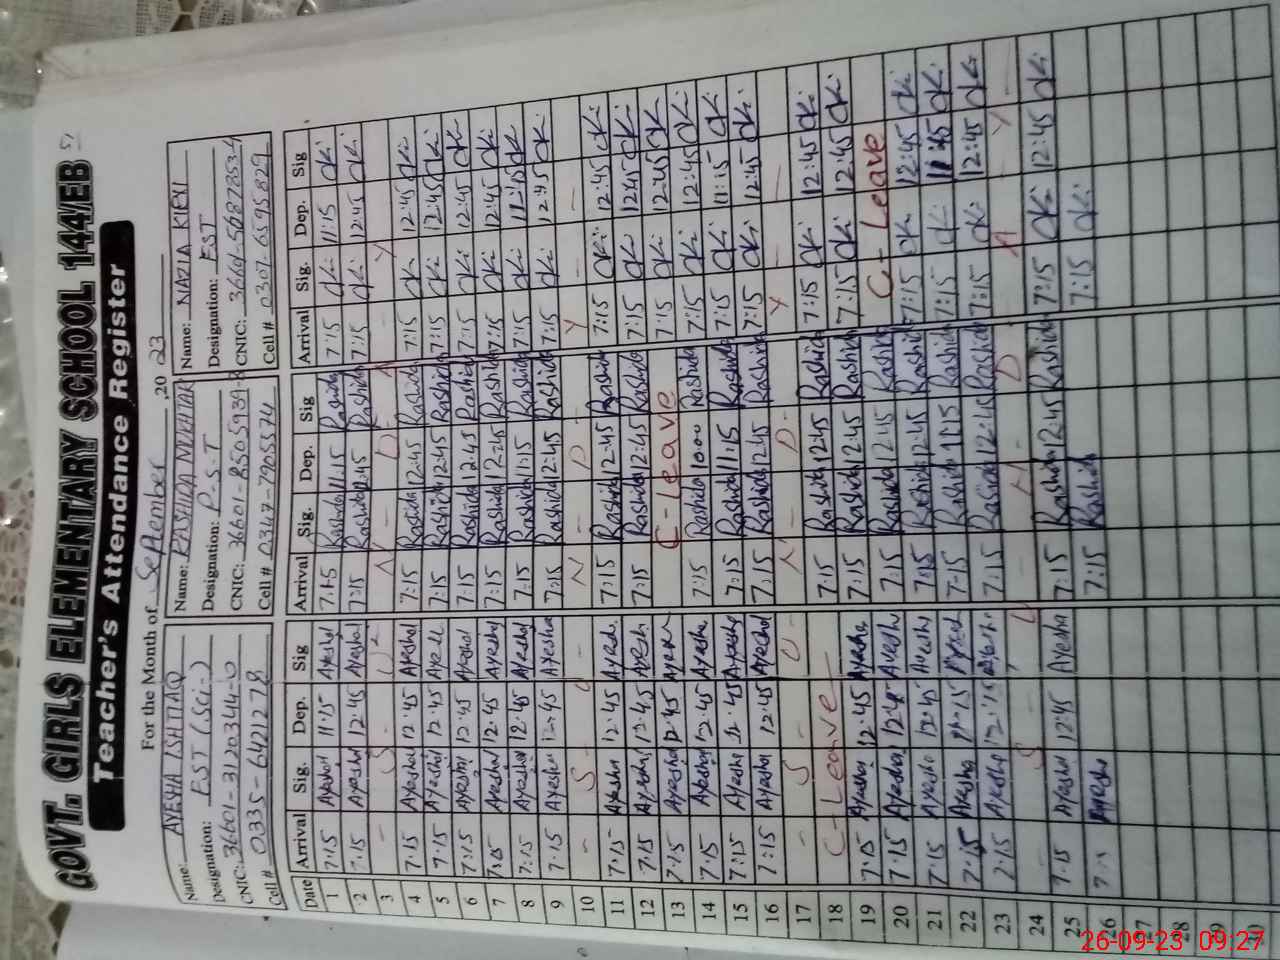 GOVT. GIRLS ELEMENTARY SCHOOL 144/EB
Teacher's Attendance Register
For the Month of September, 2023
Name: AYESHA ISHTIAQ Name: RASHIDA MUKHTAR Name: NAZIA KIRN
Designation: EST (Sci-) Designation: P-S-T Designation: EST
CNIC: 36601-3120344-0 CNIC: 36601-8505934-8 CNIC: 3660-
Cell # 0335-6421278 Cell # 0347-7905574 Cell # 0301-6595829
Date Arrival Sig. Dep. Sig Arrival Sig. Dep. Sig Arrival Sig. Dep. Sig
1 7:15 Ayesha 11:15 Ayesha 7:15 Rashida 11:15 Rashida 7:15 dKi 11:15 dKi
2 7:15 Ayesha 12:45 Ayesha 7:15 Rashida 12:45 Rashida 7:15 dKi 12:45 dKi
3 - S - U - N - D - A - Y
4 7:15 Ayesha 12:45 Ayesha 7:15 Rashida 12:45 Rashida 7:15 dKi 12:45 dKi
5 7:15 Ayesha 12:45 Ayesha 7:15 Rashida 12:45 Rashida 7:15 dKi 12:45 dKi
6 7:15 Ayesha 12:45 Ayesha 7:15 Rashida 12:45 Rashida 7:15 dKi 12:45 dKi
7 7:15 Ayesha 12:45 Ayesha 7:15 Rashida 12:45 Rashida 7:15 dKi 12:45 dKi
8 7:15 Ayesha 12:45 Ayesha 7:15 Rashida 11:15 Rashida 7:15 dKi 11:15 dKi
9 7:15 Ayesha 12:45 Ayesha 7:15 Rashida 12:45 Rashida 7:15 dKi 12:45 dKi
10 - S - U - N - D - Y -
11 7:15 Ayesha 12:45 Ayesha 7:15 Rashida 12:45 Rashida 7:15 dKi 12:45 dKi
12 7:15 Ayesha 12:45 Ayesha 7:15 Rashida 12:45 Rashida 7:15 dKi 12:45 dKi
13 7:15 Ayesha 12:45 Ayesha C-Leave 7:15 dKi 12:45 dKi
14 7:15 Ayesha 12:45 Ayesha 7:15 Rashida 10:00 Rashida 7:15 dKi 12:45 dKi
15 7:15 Ayesha 12:45 Ayesha 7:15 Rashida 11:15 Rashida 7:15 dKi 11:15 dKi
16 7:15 Ayesha 12:45 Ayesha 7:15 Rashida 12:45 Rashida 7:15 dKi 12:45 dKi
17 - S - U - N - D - Y -
18 C-Leave 7:15 Rashida 12:45 Rashida 7:15 dKi 12:45 dKi
19 7:15 Ayesha 12:45 Ayesha 7:15 Rashida 12:45 Rashida 7:15 dKi 12:45 dKi
20 7:15 Ayesha 12:45 Ayesha 7:15 Rashida 12:45 Rashida C-Leave
21 7:15 Ayesha 12:45 Ayesha 7:15 Rashida 12:45 Rashida 7:15 dKi 12:45 dKi
22 7:15 Ayesha 11:15 Ayesha 7:15 Rashida 11:15 Rashida 7:15 dKi 11:45 dKi
23 7:15 Ayesha Ayesha 7:15 Rashida 12:45 Rashida 7:15 dKi 12:45 dKi
24 - S - U - N - D - A - Y
25 7:15 Ayesha 12:45 Ayesha 7:15 Rashida 12:45 Rashida 7:15 dKi 12:45 dKi
26 Ayesha 7:15 Rashida 7:15 dKi
27
28
29
30
26-09-23 09:27